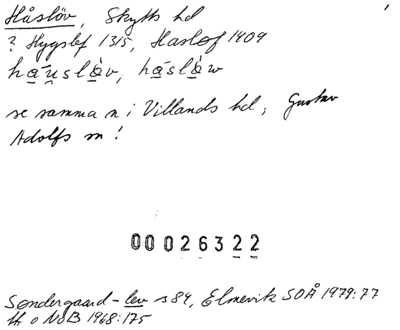 Håslöv, Skytts hd
? Hygslef 1315, Haslof 1409
ha̱uslà̱v, hå̱slà̱w
se samma n i Villands hd, Gustav
Adolfs sn!
00026322
Søndergaard - lev s 84, Elmevik SOÅ 1979:77
th o NoB 1968:175